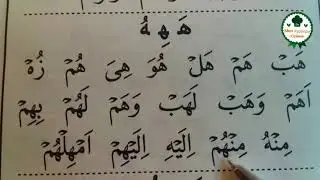 هَ هِ هُ
هَبْ هَمْ هَلْ هُوَ هِیَ هُمْ زُهْ
اَهَمْ وَهَبْ لَهَبْ وَهَمْ لَهُمْ بِهِمْ
مِنْهُ مِنْهُمْ اِلَيْهِ اِلَيْهِمْ اَمْهِلْهُمْ